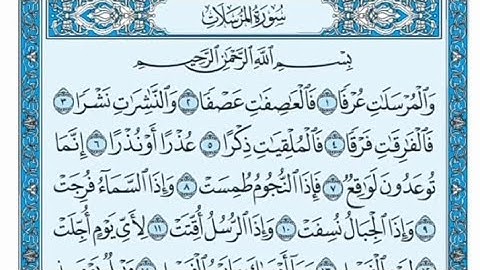 سُورَةُ المُرْسَلَاتِ
بِسْمِ ٱللَّهِ ٱلرَّحْمَٰنِ ٱلرَّحِيمِ
وَٱلْمُرْسَلَٰتِ عُرْفًا ١ فَٱلْعَٰصِفَٰتِ عَصْفًا ٢ وَٱلنَّٰشِرَٰتِ نَشْرًا ٣
فَٱلْفَٰرِقَٰتِ فَرْقًا ٤ فَٱلْمُلْقِيَٰتِ ذِكْرًا ٥ عُذْرًا أَوْ نُذْرًا ٦ إِنَّمَا
تُوعَدُونَ لَوَٰقِعٌ ٧ فَإِذَا ٱلنُّجُومُ طُمِسَتْ ٨ وَإِذَا ٱلسَّمَآءُ فُرِجَتْ
٩ وَإِذَا ٱلْجِبَالُ نُسِفَتْ ١٠ وَإِذَا ٱلرُّسُلُ أُقِّتَتْ ١١ لِأَيِّ يَوْمٍ أُجِّلَتْ